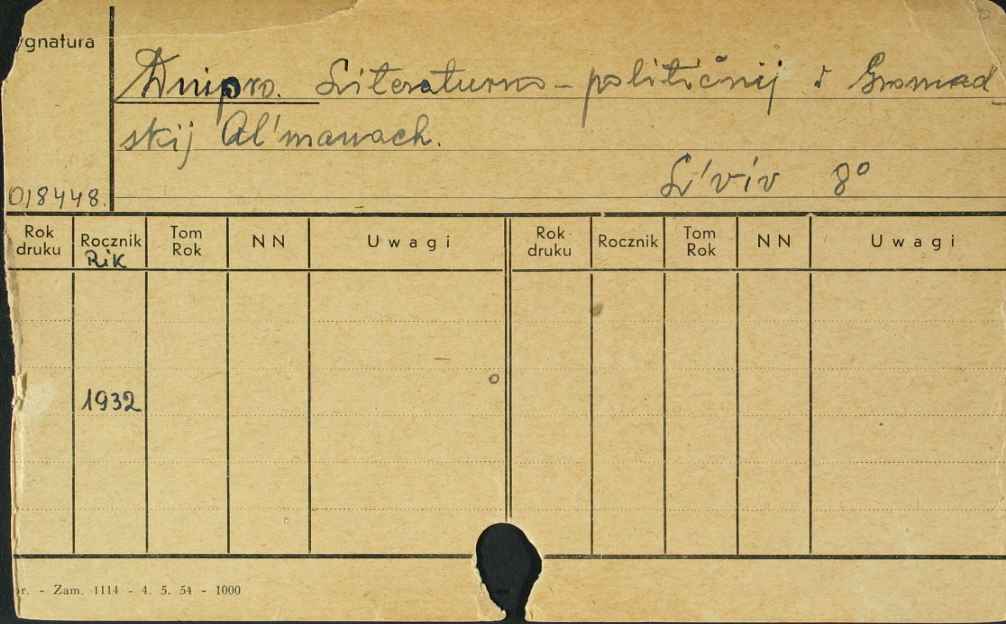 ygnatura
Dnipro. Literaturno-politični j i Gromad
skij Al'manach.
L'viv 8°
018448.
Rok druku Rocznik Tom Rok NN Uwagi Rok druku Rocznik Tom Rok NN Uwagi
Rik
1932
r. - Zam. 1114 - 4. 5. 54 - 1000